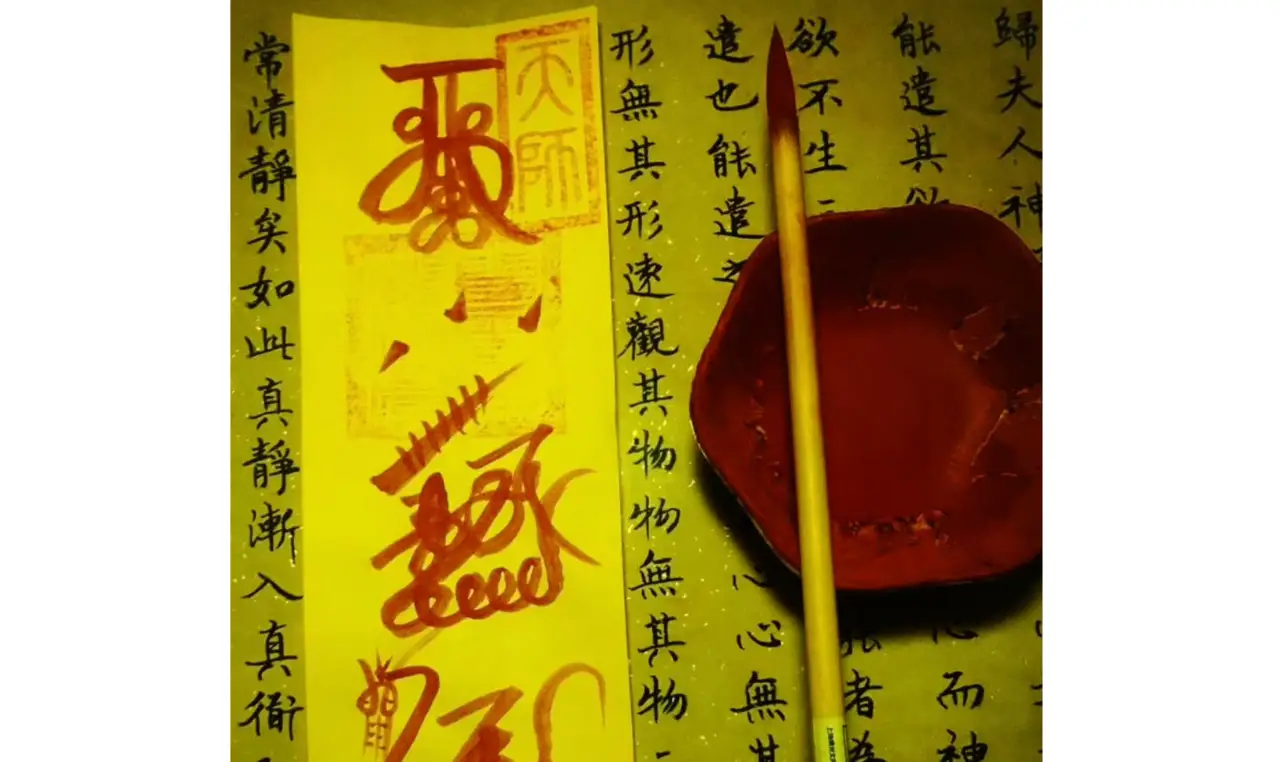 歸夫人神
能遣其欲心而神
欲不生能者為
遣也能遣之心心無其
形無其形遠觀其物物無其物
天師
常清靜矣如此真靜漸入真衜